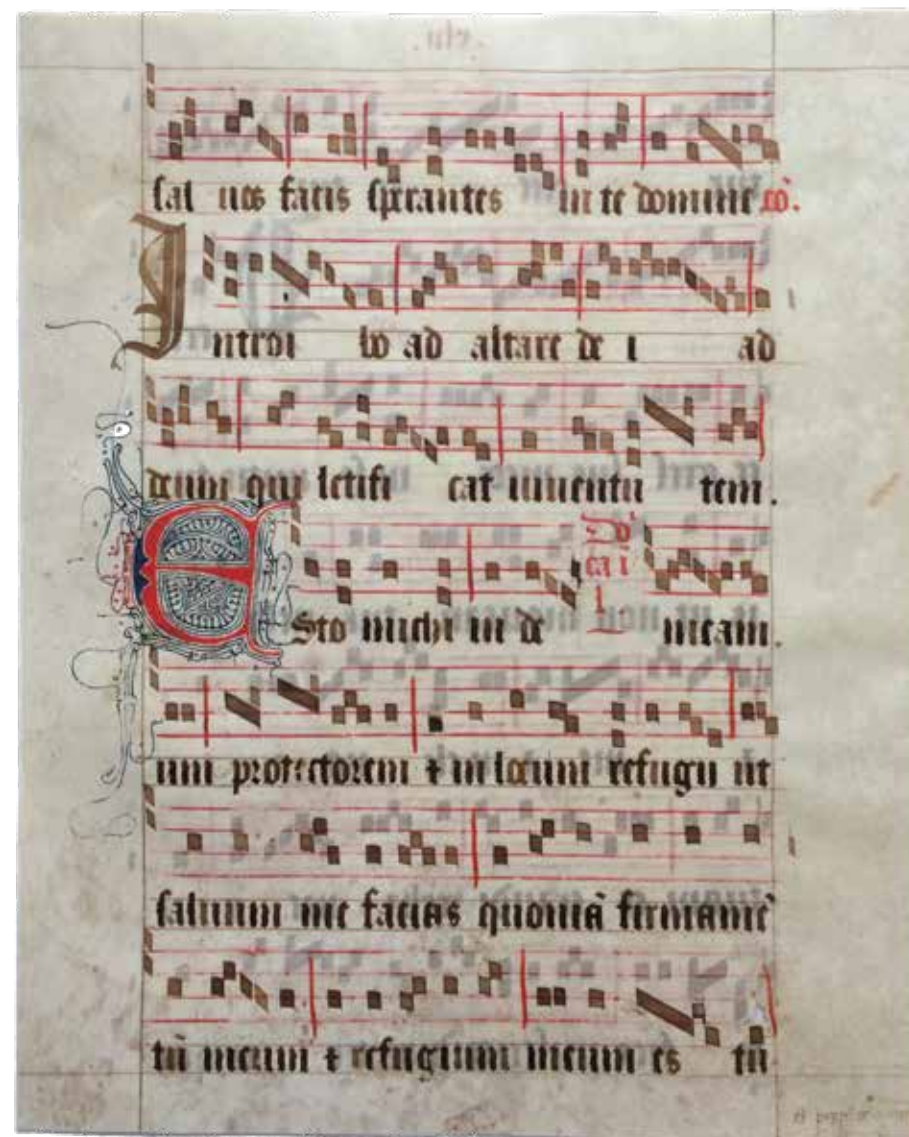 sal uos facis sperantes in te domine cō.
Introi bo ad altare de i ad
deum qui letifi cat iuuentu tem.
Esto michi in de meam.
um protectorem et in locum refugii ut
saluum me facias quoniā firmamē
tū meum et refugium meum es tu